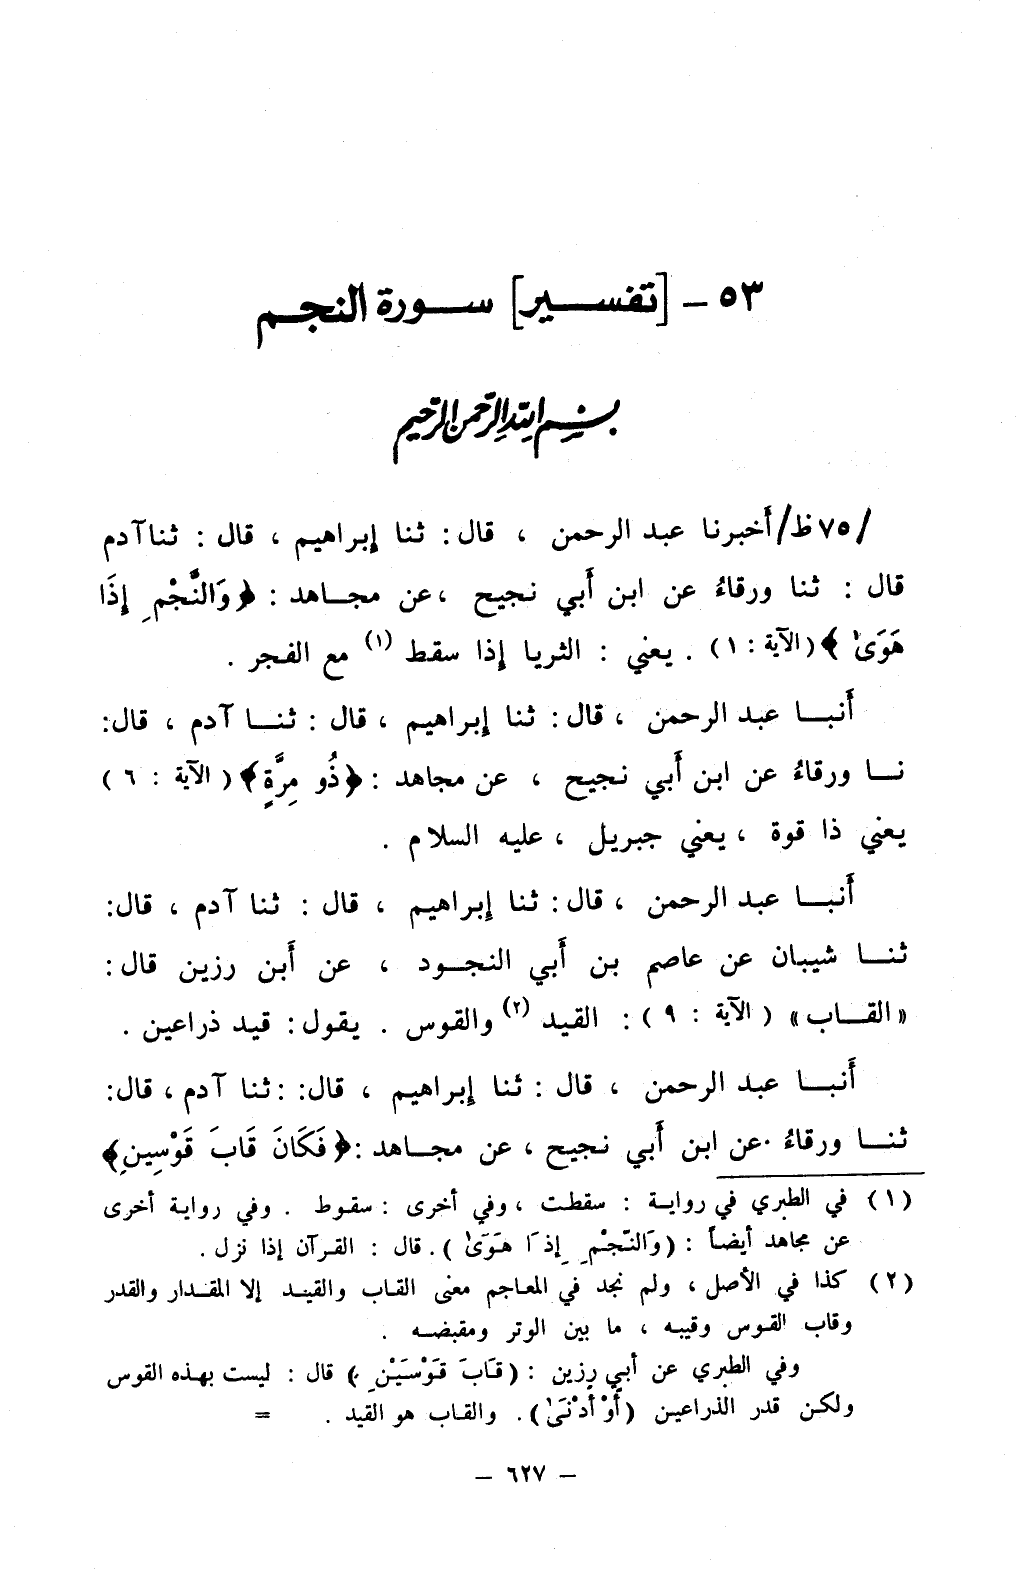 ٥٣ - [تفسير] سورة النجم
بسم الله الرحمن الرحيم
/٧٥ظ/أخبرنا عبد الرحمن ، قال: ثنا إبراهيم ، قال : ثناآدم
قال : ثنا ورقاءُ عن ابن أَبي نجيح ،عن مجاهد : ﴿وَالنَّجْمِ إِذَا
هَوَىٰ﴾(الآية : ١) . يعني : الثريا إِذا سقط (١) مع الفجر .
أَنبا عبد الرحمن ، قال: ثنا إِبراهيم ، قال : ثنا آدم ، قال:
نا ورقاءُ عن ابن أَبي نجيح ، عن مجاهد : ﴿ذُو مِرَّةٍ﴾ (الآية : ٦ )
يعني ذا قوة ، يعني جبريل ، عليه السلام .
أَنبا عبد الرحمن ، قال: ثنا إِبراهيم ، قال : ثنا آدم ، قال:
ثنا شيبان عن عاصم بن أَبي النجود ، عن أَبن رزين قال :
«القاب» ( الآية : ٩ ) : القيد (٢) والقوس . يقول: قيد ذراعين .
أَنبا عبد الرحمن ، قال : ثنا إِبراهيم ، قال: :ثنا آدم ، قال:
ثنا ورقاءُ ·عن ابن أَبي نجيح ، عن مجاهد :﴿فَكَانَ قَابَ قَوْسِينِ﴾
(١) في الطبري في رواية : سقطت ، وفي أخرى : سقوط . وفي رواية أخرى
عن مجاهد أيضاً : (وَالنَّجْمِ إِذَا هَوَىٰ ). قال : القرآن إذا نزل .
(٢) كذا في الأصل ، ولم نجد في المعاجم معنى القاب والقيد إلا المقدار والقدر
وقاب القوس وقيبه ، ما بين الوتر ومقبضه .
وفي الطبري عن أبي رزين : (قَابَ قَوْسَيْنِ ) قال : ليست بهذه القوس
ولكن قدر الذراعين (أَوْ أَدْنَىٰ ). والقاب هو القيد . =
- ٦٢٧ -